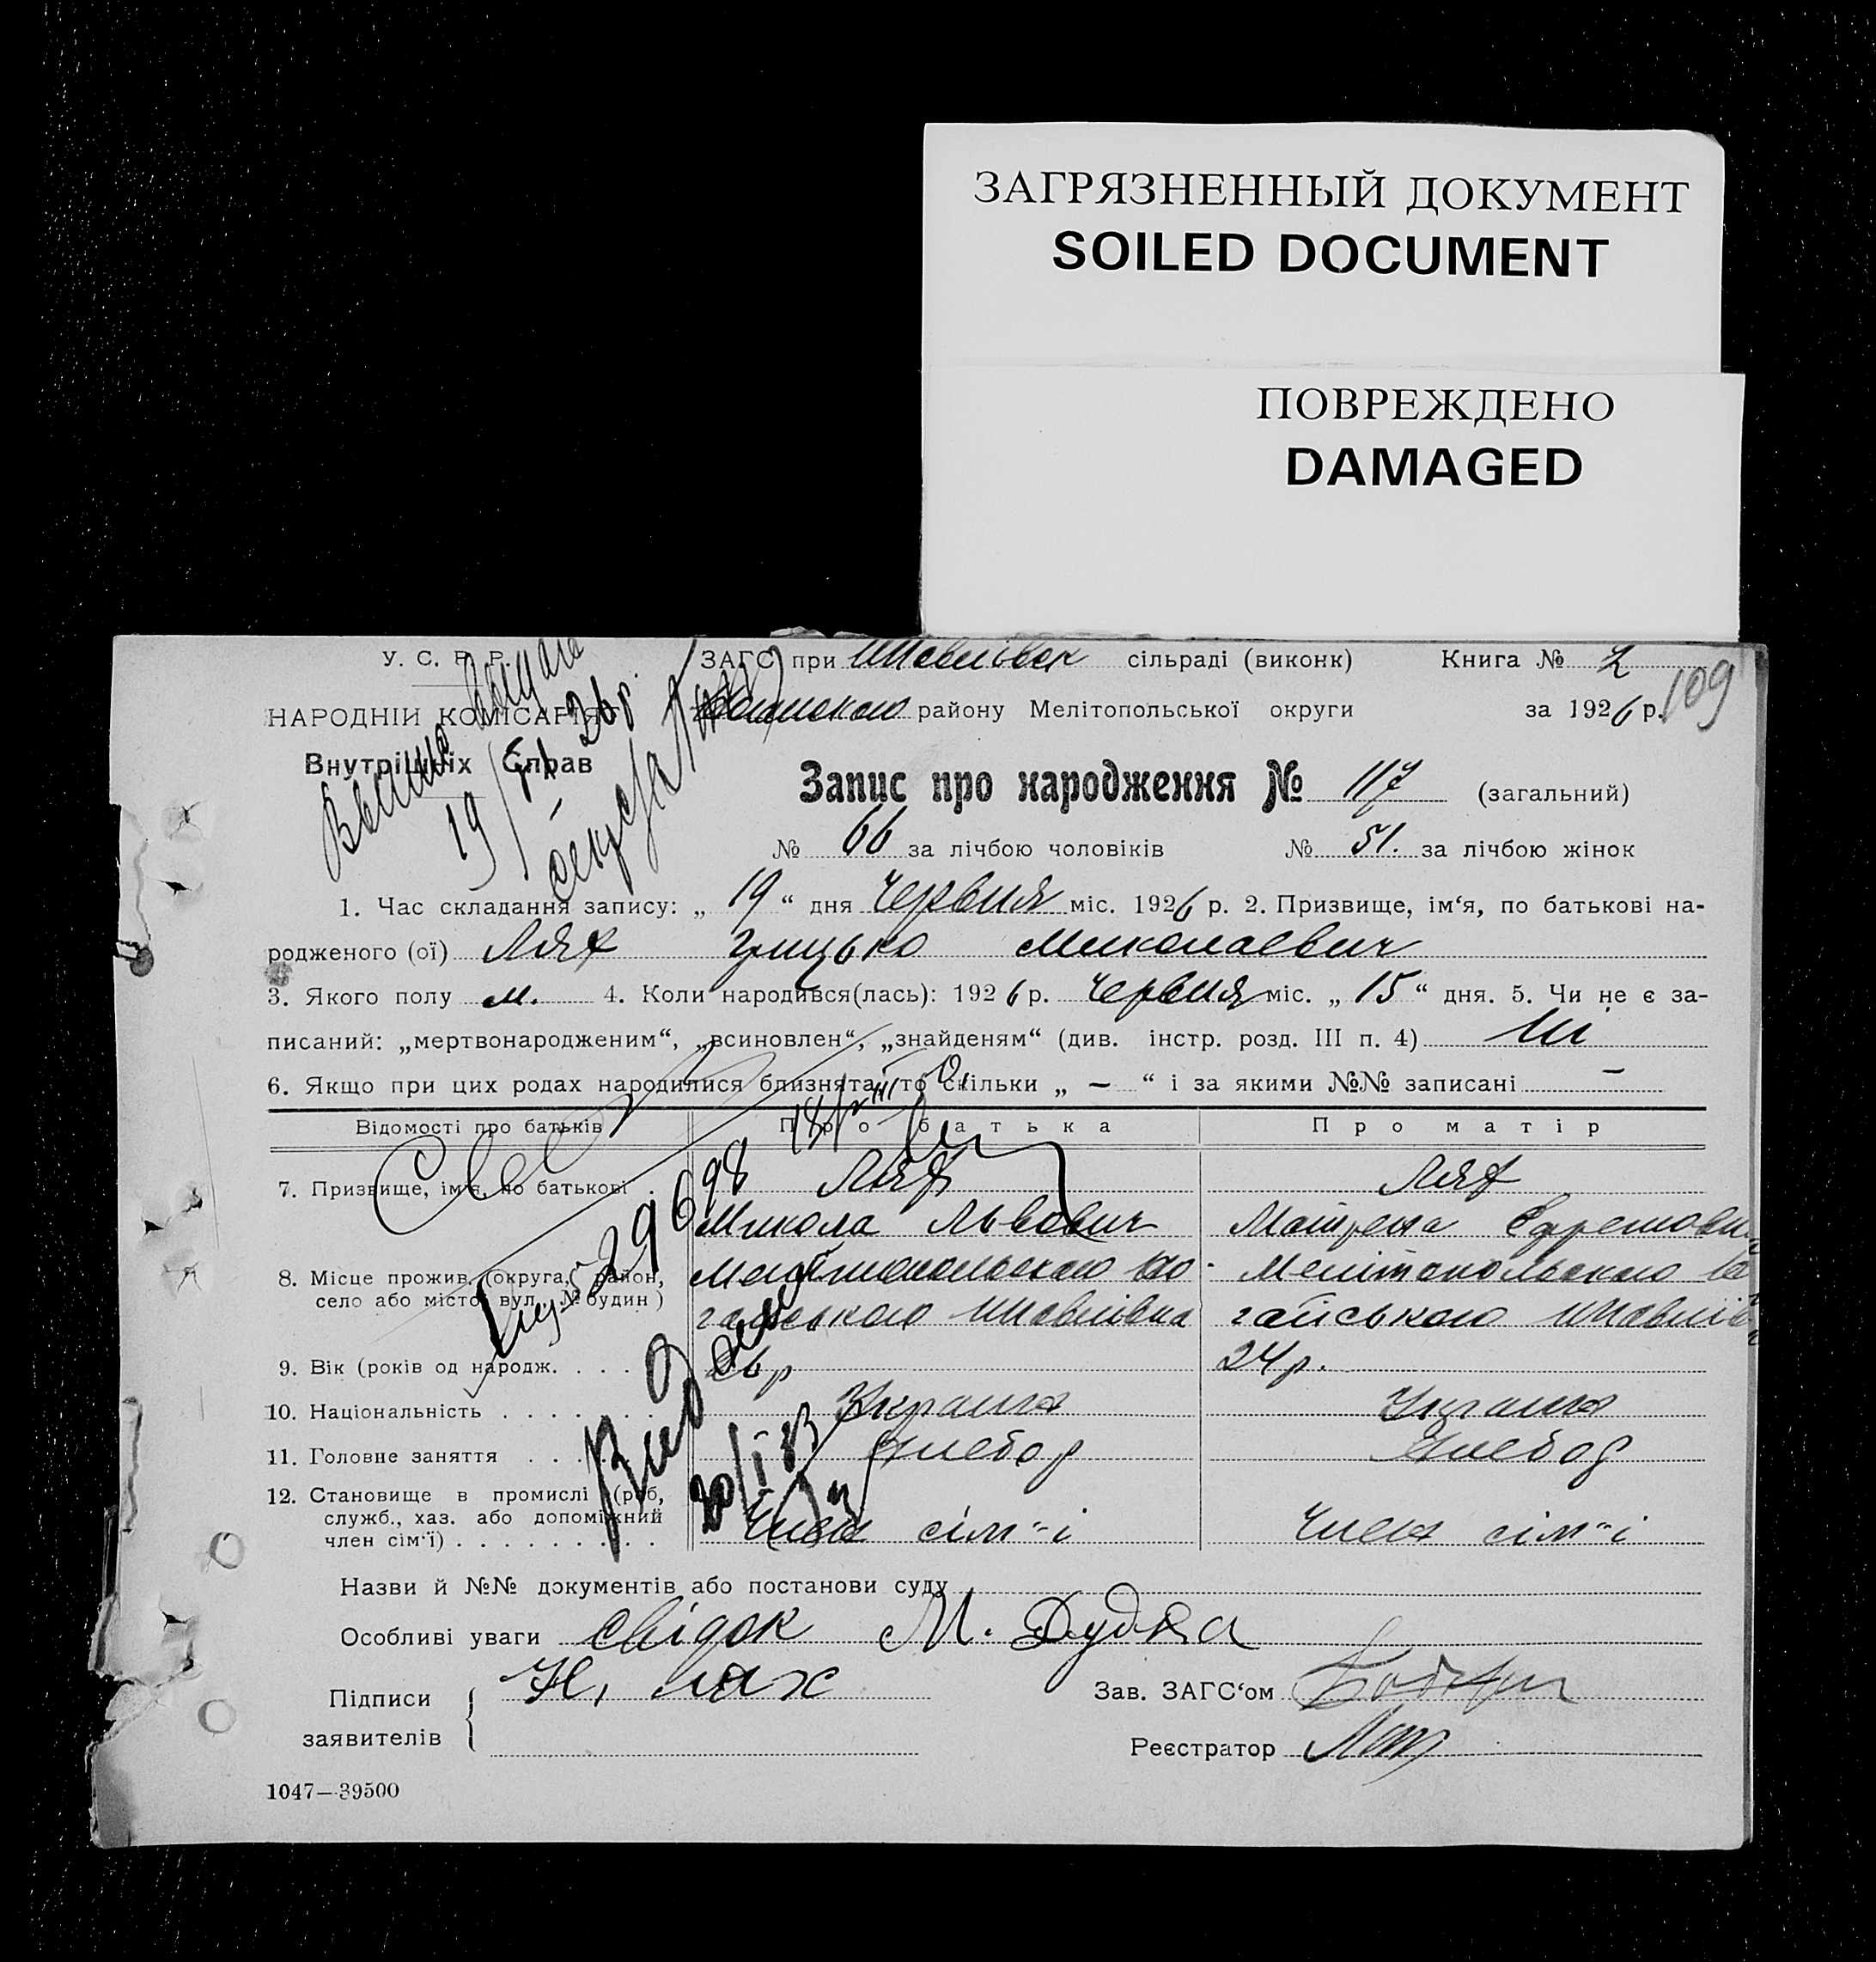 ЗАГРЯЗНЕННЫЙ ДОКУМЕНТ
SOILED DOCUMENT
ПОВРЕЖДЕНО
DAMAGED
У. С. Р. Р.
ЗАГС при сільраді (виконк) Книга № 2
109
НАРОДНІЙ КОМІСАРІЯТ
району Мелітопольської округи за 1926 р.
Внутрішніх Справ
19/VI 26 р.
Запис про народження № 117 (загальний)
№ 66 за лічбою чоловіків № 51. за лічбою жінок
1. Час складання запису: „ 19 “ дня Червня міс. 1926 р. 2. Призвище, ім‘я, по батькові на-
родженого (ої) Лях Грицько Миколаевич
3. Якого полу м. 4. Коли народився(лась): 1926 р. Червня міс. „ 15 “ дня. 5. Чи не є за-
писаний: „мертвонародженим“, „всиновлен“, „знайденям“ (див. інстр. розд. III п. 4) Ні
6. Якщо при цих родах народилися близнята, то скільки „ – “ і за якими №№ записані –
Відомості про батьків Про батька Про матір
7. Призвище, ім‘я, по батькові . Лях Лях
Микола Львович Мотрена Ефремовн
8. Місце прожив. (округа, район, Мелітопольського Мелітопольського
село або місто, вул., № будин) гайського
9. Вік (років од народж. . . . . 26 р 24 р.
10. Національність . . . . . . . Украина Украина
11. Головне заняття . . . . Хлебор Хлебор
12. Становище в промислі (роб,
служб., хаз. або допоміжний
член сім‘ї) . . . . . . . . . Член сім"і Член сім"і
296698
Видано
Назви й №№ документів або постанови суду
Особливі уваги Свідок М. Дудка
Підписи Н. лях
заявителів
Зав. ЗАГС‘ом
Реєстратор
1047—39500